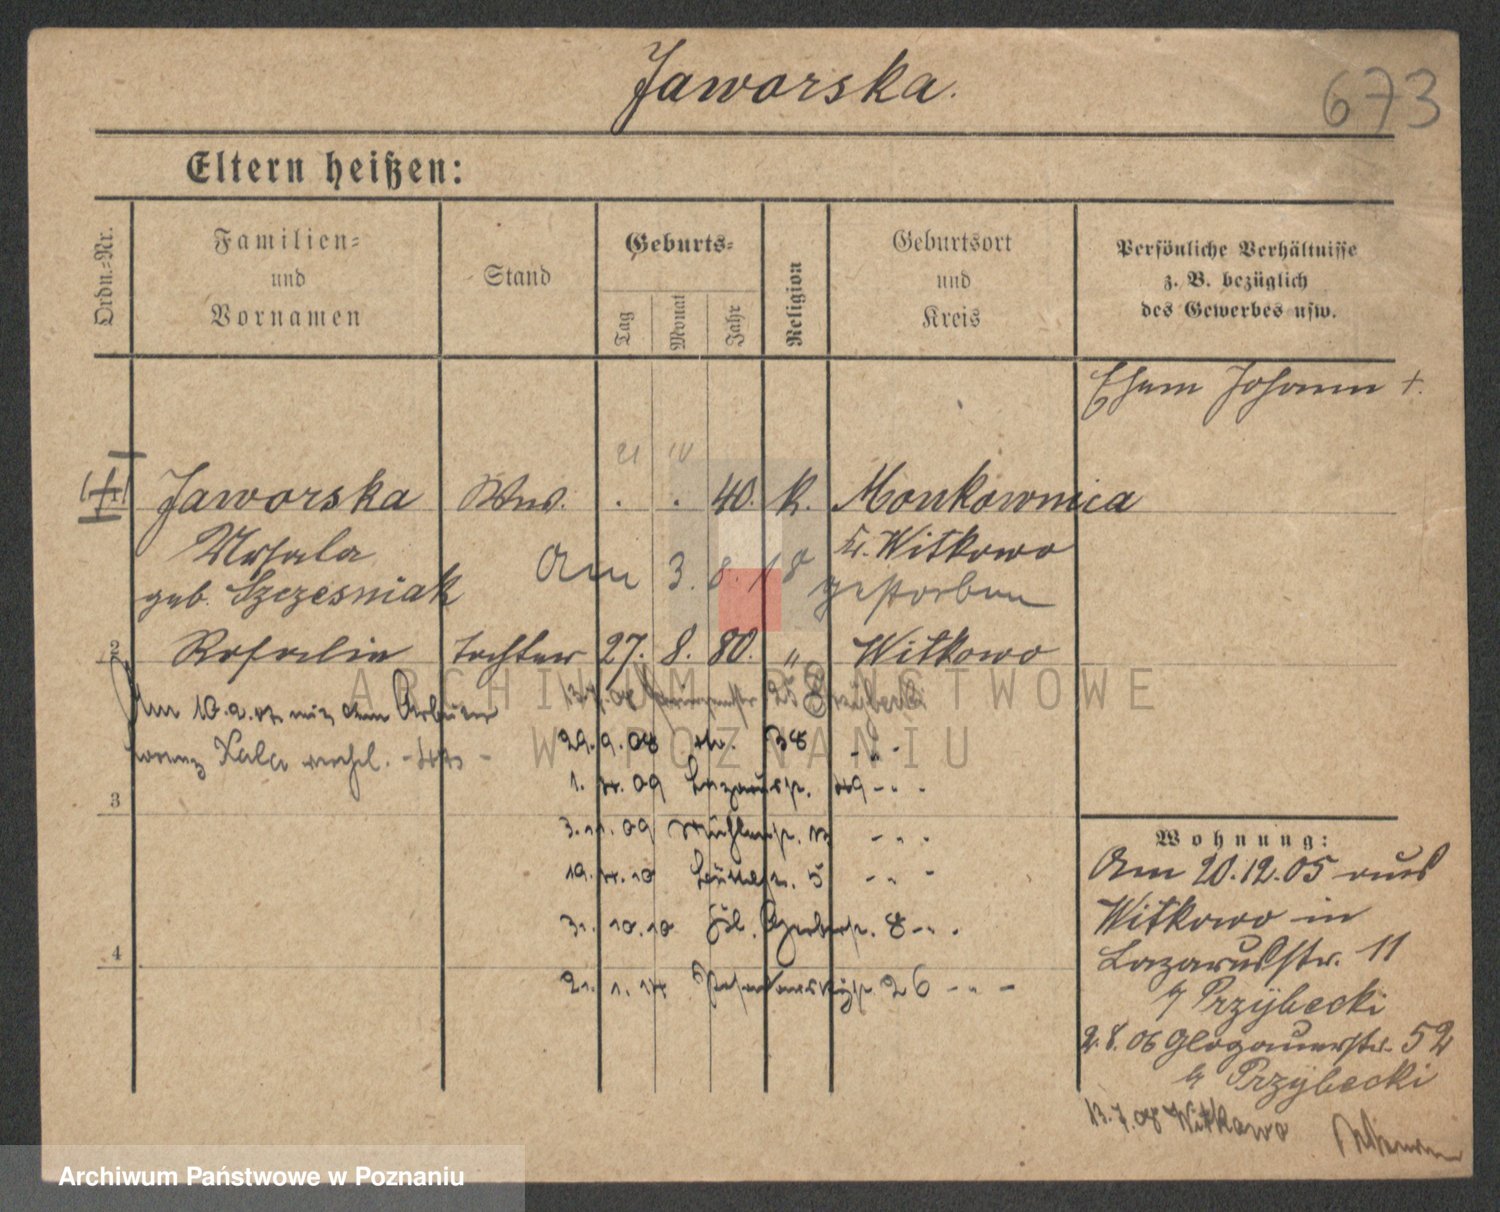 Jaworska.
673
Eltern heißen:
Ordn.-Nr.
Familien-
und
Vornamen
Stand
Geburts-
Tag
Monat
Jahr
Religion
Geburtsort
und
Kreis
Persönliche Verhältnisse
z. B. bezüglich
des Gewerbes usw.
Ehem Johann +.
21 IV
Jaworska Wwe. . . 40. K. Monkownica
Ursula Kr. Witkowo
geb. Szczesniak Am 3. 8. 18 gestorben
2 Rosalie Tochter 27. 8. 80. " Witkowo
Am 10.2.07 mit dem Arbeiter
Lorenz Kala verehl.
13.7.08 25 Przÿbecki
29.9.08 38 " -
1. 4. 09 Lazarusstr. 49 - " -
3
3.11.09 Mühlenstr. - " -
19.4.10 5 - " -
31.10.10 Gr. Gerberstr. 8 - " -
4
21. 1. 14 26 - " -
Wohnung:
Am 20.12.05 aus
Witkowo in
Lazarusstr. 11
b Przÿbecki
2.8.06 Glogauerstr. 52
b Przÿbecki
13.7.08 Witkowo
ARCHIWUM PAŃSTWOWE
W POZNANIU
Archiwum Państwowe w Poznaniu